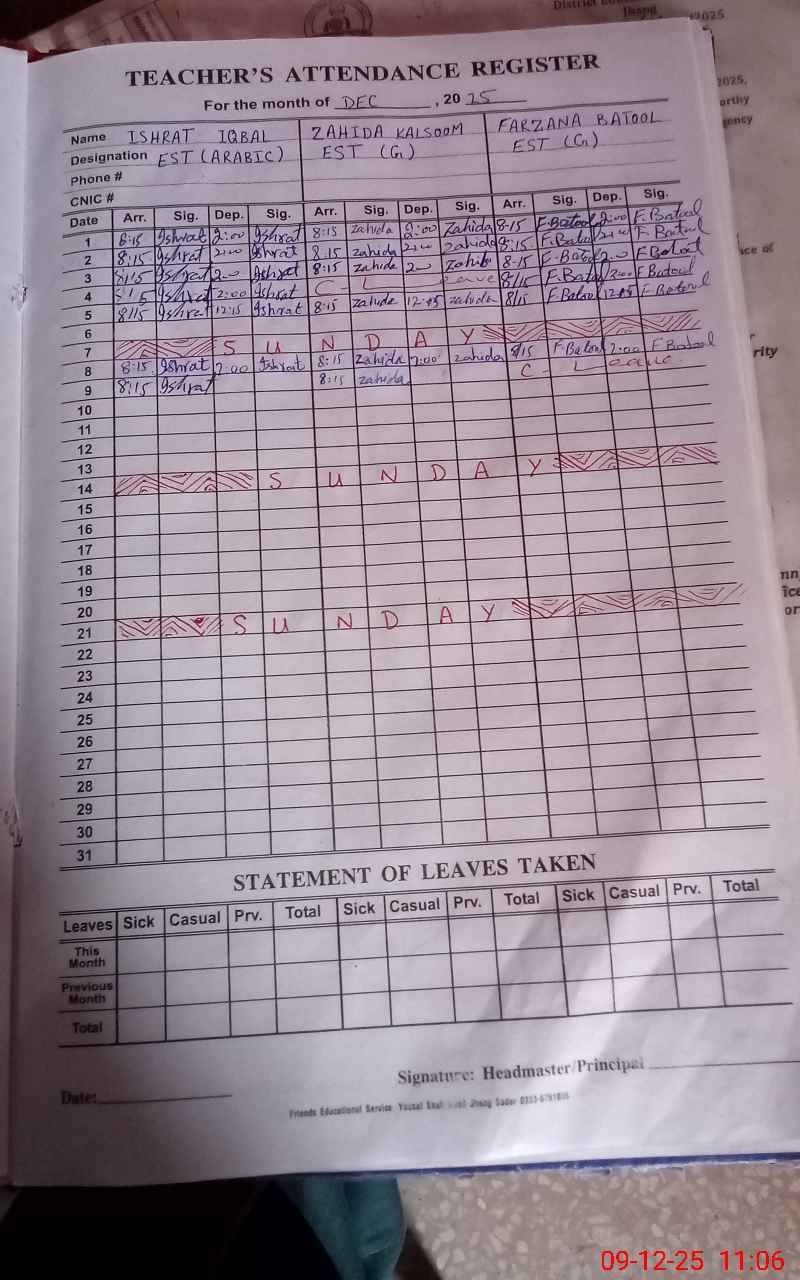 District
Jhang
2025
2025,
orthy
gency
ice of
rity
TEACHER'S ATTENDANCE REGISTER
For the month of DEC , 20 25
Name ISHRAT IQBAL ZAHIDA KALSOOM FARZANA BATOOL
Designation EST (ARABIC) EST (G) EST (G)
Phone #
CNIC #
Date Arr. Sig. Dep. Sig. Arr. Sig. Dep. Sig. Arr. Sig. Dep. Sig.
1 8:15 Ishrat 2:00 Ishrat 8:15 Zahida 2:00 Zahida 8-15 F.Batool 2:00 F.Batool
2 8:15 Ishrat 2:00 Ishrat 8:15 zahida 2:00 zahida 8:15 F.Batool 2:00 F.Batool
3 8:15 Ishrat 2:00 Ishrat 8:15 zahida 2:00 Zahida 8-15 F.Batool 2:00 F.Batool
4 8:15 Ishrat 2:00 Ishrat C - Leave 8/15 F.Batool 2:00 F.Batool
5 8/15 Ishrat 12:15 Ishrat 8:15 zahida 12:15 zahida 8/15 F.Batool 12:15 F.Batool
6
7 SUNDAY
8 8:15 Ishrat 2:00 Ishrat 8:15 Zahida 2:00 zahida 8/15 F.Batool 2:00 F.Batool
9 8:15 Ishrat 8:15 zahida C - Leave
10
11
12
13
14 SUNDAY
15
16
17
18
19
20
21 SUNDAY
22
23
24
25
26
27
28
29
30
31
STATEMENT OF LEAVES TAKEN
Leaves Sick Casual Prv. Total Sick Casual Prv. Total Sick Casual Prv. Total
This Month
Previous Month
Total
Date: Signature: Headmaster/Principal
Friends Educational Service Jhang Sadar
09-12-25 11:06